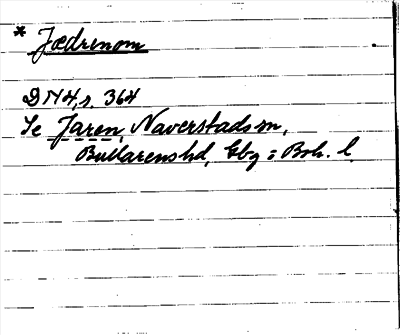 * Jædrenom
DN4, s. 364
Se Jaren, Naverstads sn,
Bullarens hd, Gbg o Boh. l.